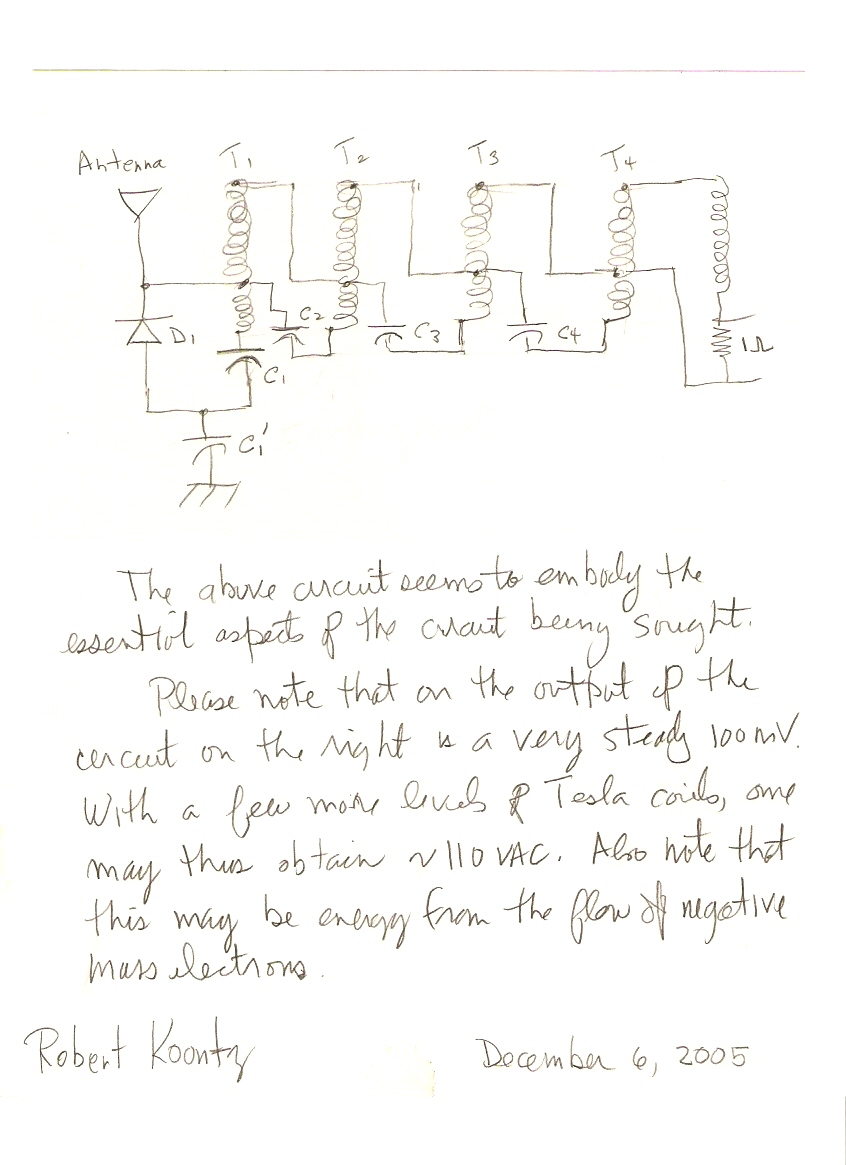 Antenna T1 T2 T3 T4
D1 C1 C2 C3 C4 1Ω
C1'
The above circuit seems to embody the
essential aspects of the circuit being sought.
Please note that on the output of the
circuit on the right is a very steady 100mV.
With a few more levels of Tesla coils, one
may thus obtain ~110 VAC. Also note that
this may be energy from the flow of negative
mass electrons.
Robert Koontz December 6, 2005